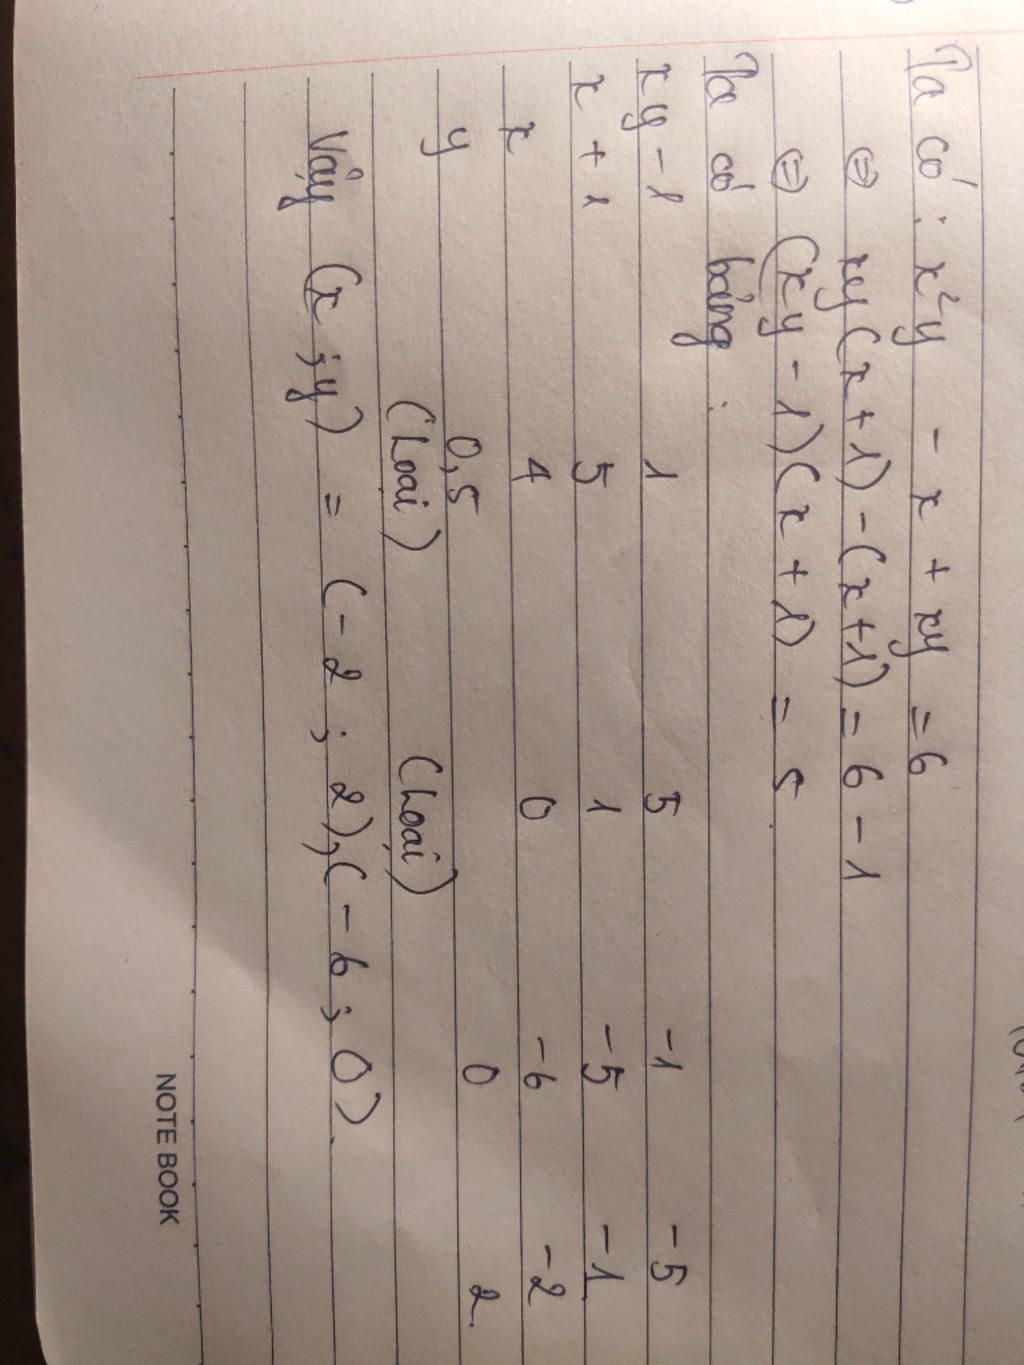 Ta có : x²y - x + xy = 6
⇔ xy(x+1) - (x+1) = 6 - 1
⇔ (xy - 1)(x + 1) = 5
Ta có bảng :
xy - 1 1 5 -1 -5
x + 1 5 1 -5 -1
x 4 0 -6 -2
y 0,5 0 2
(Loại) (Loại)
Vậy (x ; y) = (-2 ; 2), (-6 ; 0)
NOTE BOOK